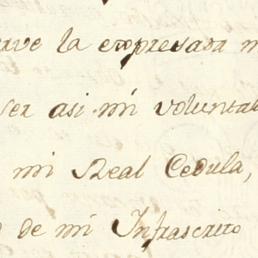 la expresada
ser asi mi volunta
mi Real Cedula,
de mi Infrascrito